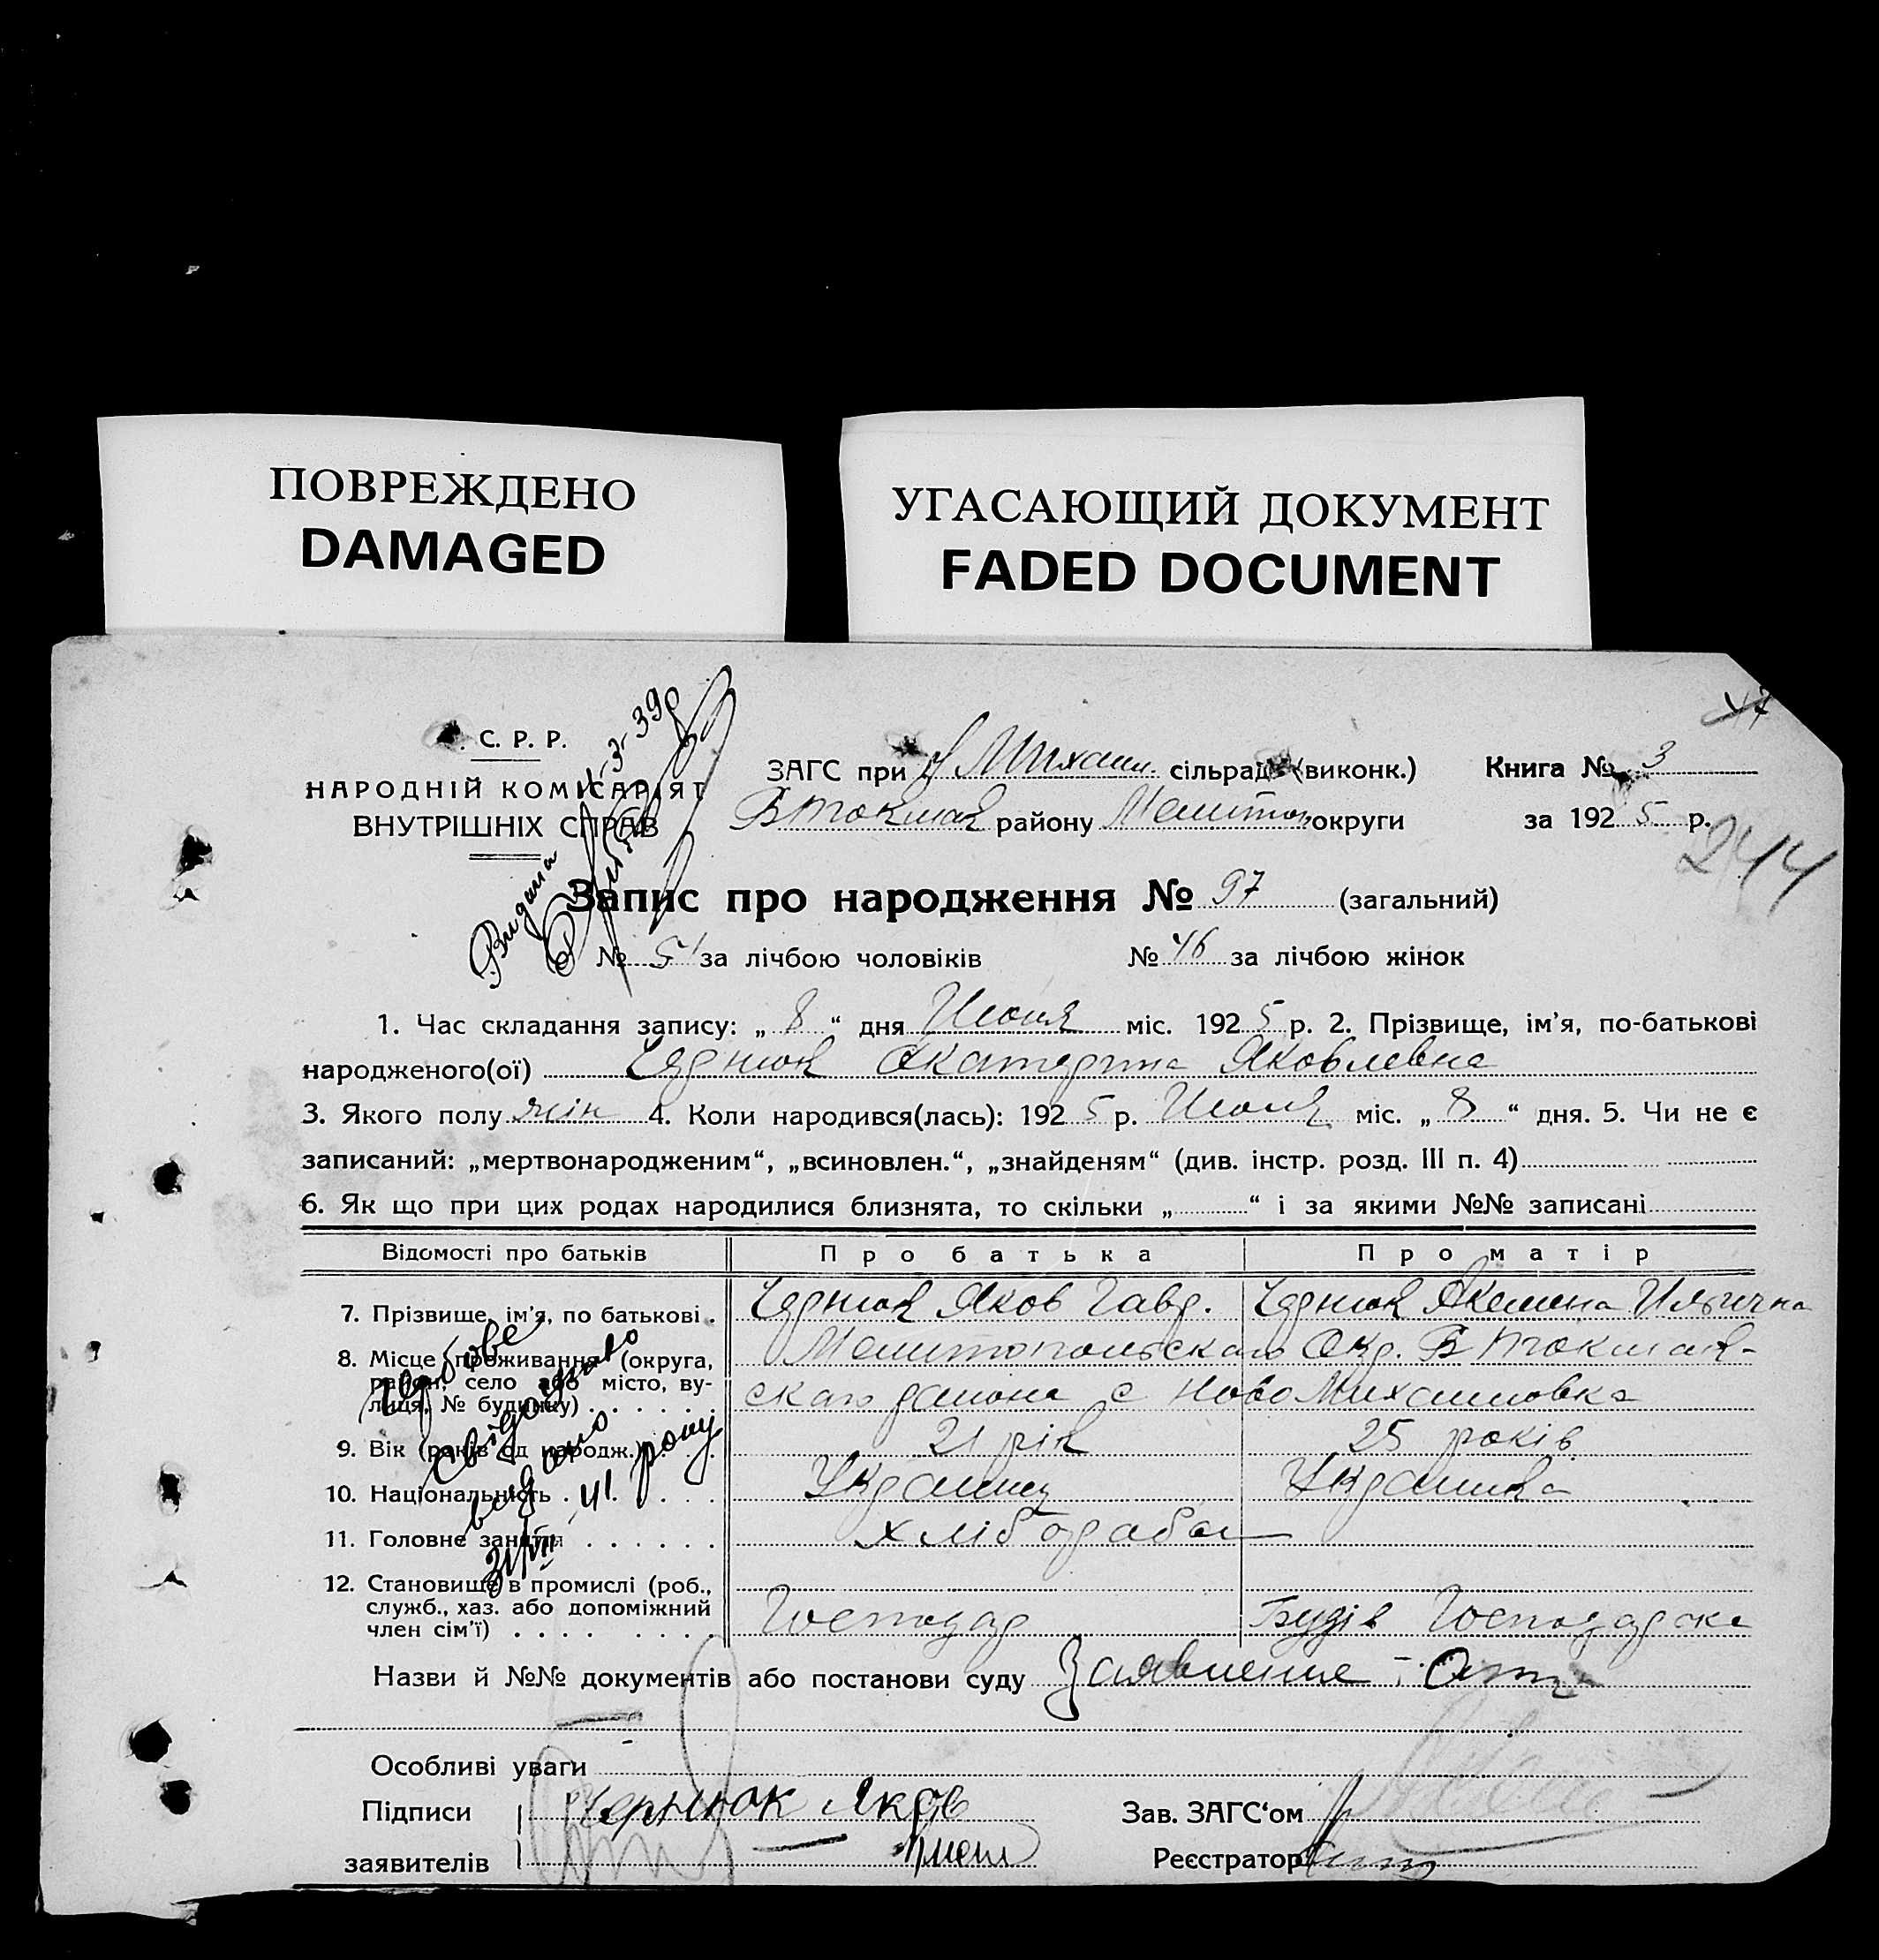 ПОВРЕЖДЕНО
DAMAGED
УГАСАЮЩИЙ ДОКУМЕНТ
FADED DOCUMENT
С. Р. Р.
НАРОДНІЙ КОМІСАРІЯТ
ВНУТРІШНІХ СПРАВ
Видана
3-39р
ЗАГС при Н Михайл. сільраді (виконк.) Книга № 3
В Токмак району Мелитоп. округи за 1925 р.
244
Запис про народження № 97 (загальний)
№ 51 за лічбою чоловіків № 46 за лічбою жінок
1. Час складання запису: „ 8 “ дня Июля міс. 1925 р. 2. Прізвище, ім'я, по-батькові
народженого(ої) Чернюк Екатерина Яковлевна
3. Якого полу жін 4. Коли народився(лась): 1925 р. Июля міс. „ 8 “ дня. 5. Чи не є
записаний: „мертвонародженим“, „всиновлен.“, „знайденям“ (див. інстр. розд. III п. 4)
6. Як що при цих родах народилися близнята, то скільки „ “ і за якими №№ записані
Відомості про батьків Про батька Про матір
7. Прізвище, ім'я, по батькові . Чернюк Яков Гавр. Чернюк Акелина Ильична
8. Місце проживання (округа, район, село або місто, вулиця, № будинку) Мелитопольскаго Окр. В Токмак-
скаго района с Ново Михайловка
9. Вік (років од народж.) 21 рік 25 років
10. Національність Украинец Украинка
11. Головне заняття хлібороба
12. Становище в промислі (роб.,
служб., хаз. або допоміжний
член сім'ї) Господар Господарска
свідоцтво
видано
41 року
Назви й №№ документів або постанови суду Заявление
Особливі уваги
Підписи Чернюк Яков
заявителів
Зав. ЗАГС'ом
Реєстратор